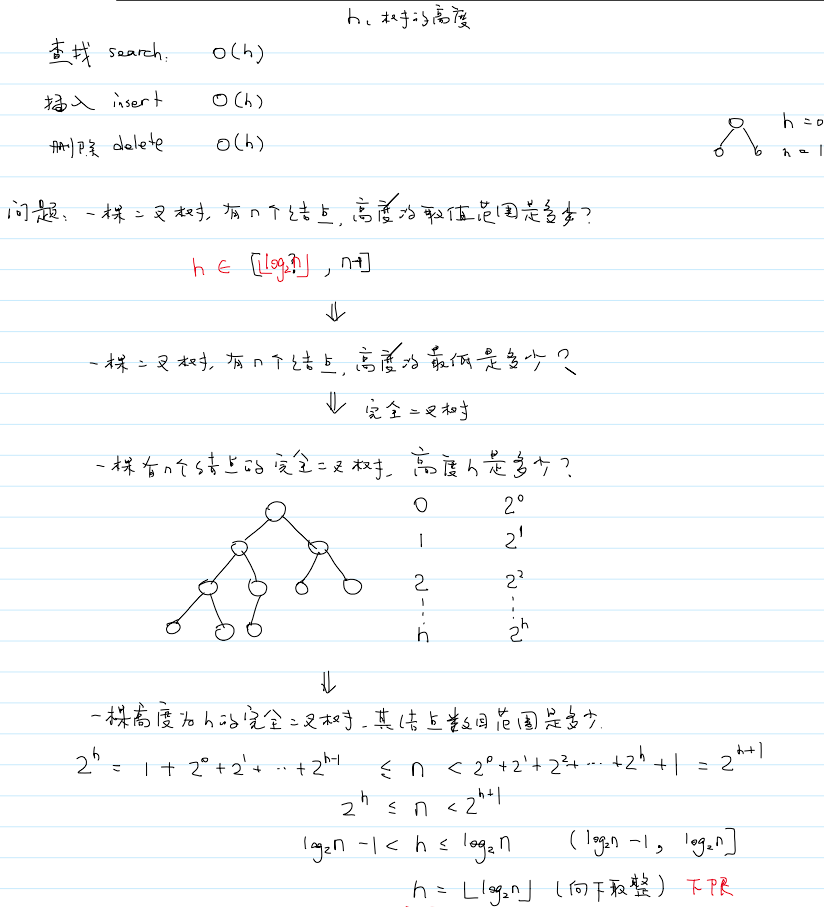 h: 树的高度
查找 search: O(h)
插入 insert O(h)
删除 delete O(h)
h=0
h=1
问题: 一棵二叉树, 有n个结点, 高度的取值范围是多少?
h ∈ [⌊log₂n⌋, n-1]
⇓
一棵二叉树, 有n个结点, 高度的最低是多少?
⇓ 完全二叉树
一棵有n个结点的完全二叉树, 高度h是多少?
0 2⁰
1 2¹
2 2²
h 2ʰ
⇓
一棵高度为h的完全二叉树, 其结点数目范围是多少.
2ʰ = 1 + 2⁰ + 2¹ + ⋯ + 2ʰ⁻¹ ≤ n < 2⁰ + 2¹ + 2² + ⋯ + 2ʰ + 1 = 2ʰ⁺¹
2ʰ ≤ n < 2ʰ⁺¹
log₂n - 1 < h ≤ log₂n (log₂n - 1, log₂n]
h = ⌊log₂n⌋ (向下取整) 下限